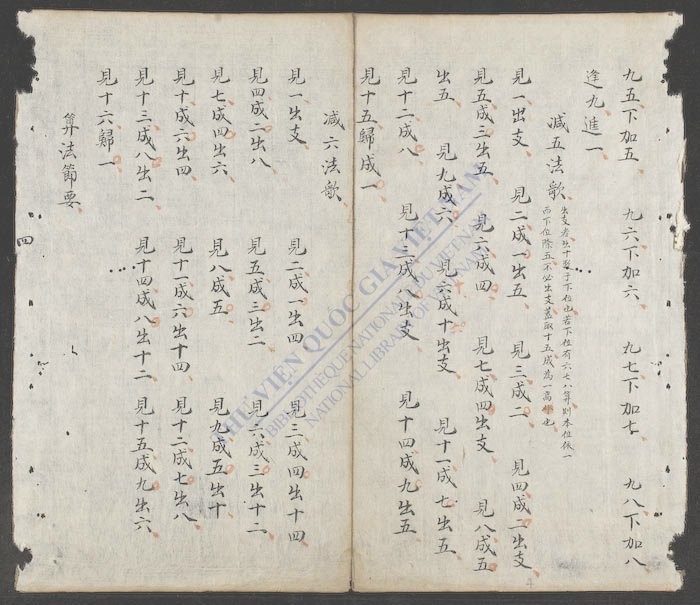 九五下加五 九六下加六 九七下加七 九八下加八
逢九進一
減五法歌
見一出支 見二成一出五 見三成二 見四成二出支
見五成三出五 見六成四 見七成四出支 見八成五
出五 見九成六 見六成十出支 見十一成七出五
見十二成八 見十三成八出支 見十四成九出五
見十五歸成一
減六法歌
見一出支 見二成一出四 見三成四出十四
見四成二出八 見五成三出二 見六成三出十二
見七成四出六 見八成五 見九成五出十
見十成六出四 見十一成六出十四 見十二成七出八
見十三成八出二 見十四成八出十二 見十五成九出六
見十六歸一
算法節要
四
THƯ VIỆN QUỐC GIA VIỆT NAM
BIBLIOTHÈQUE NATIONALE DU VIETNAM
NATIONAL LIBRARY OF VIETNAM